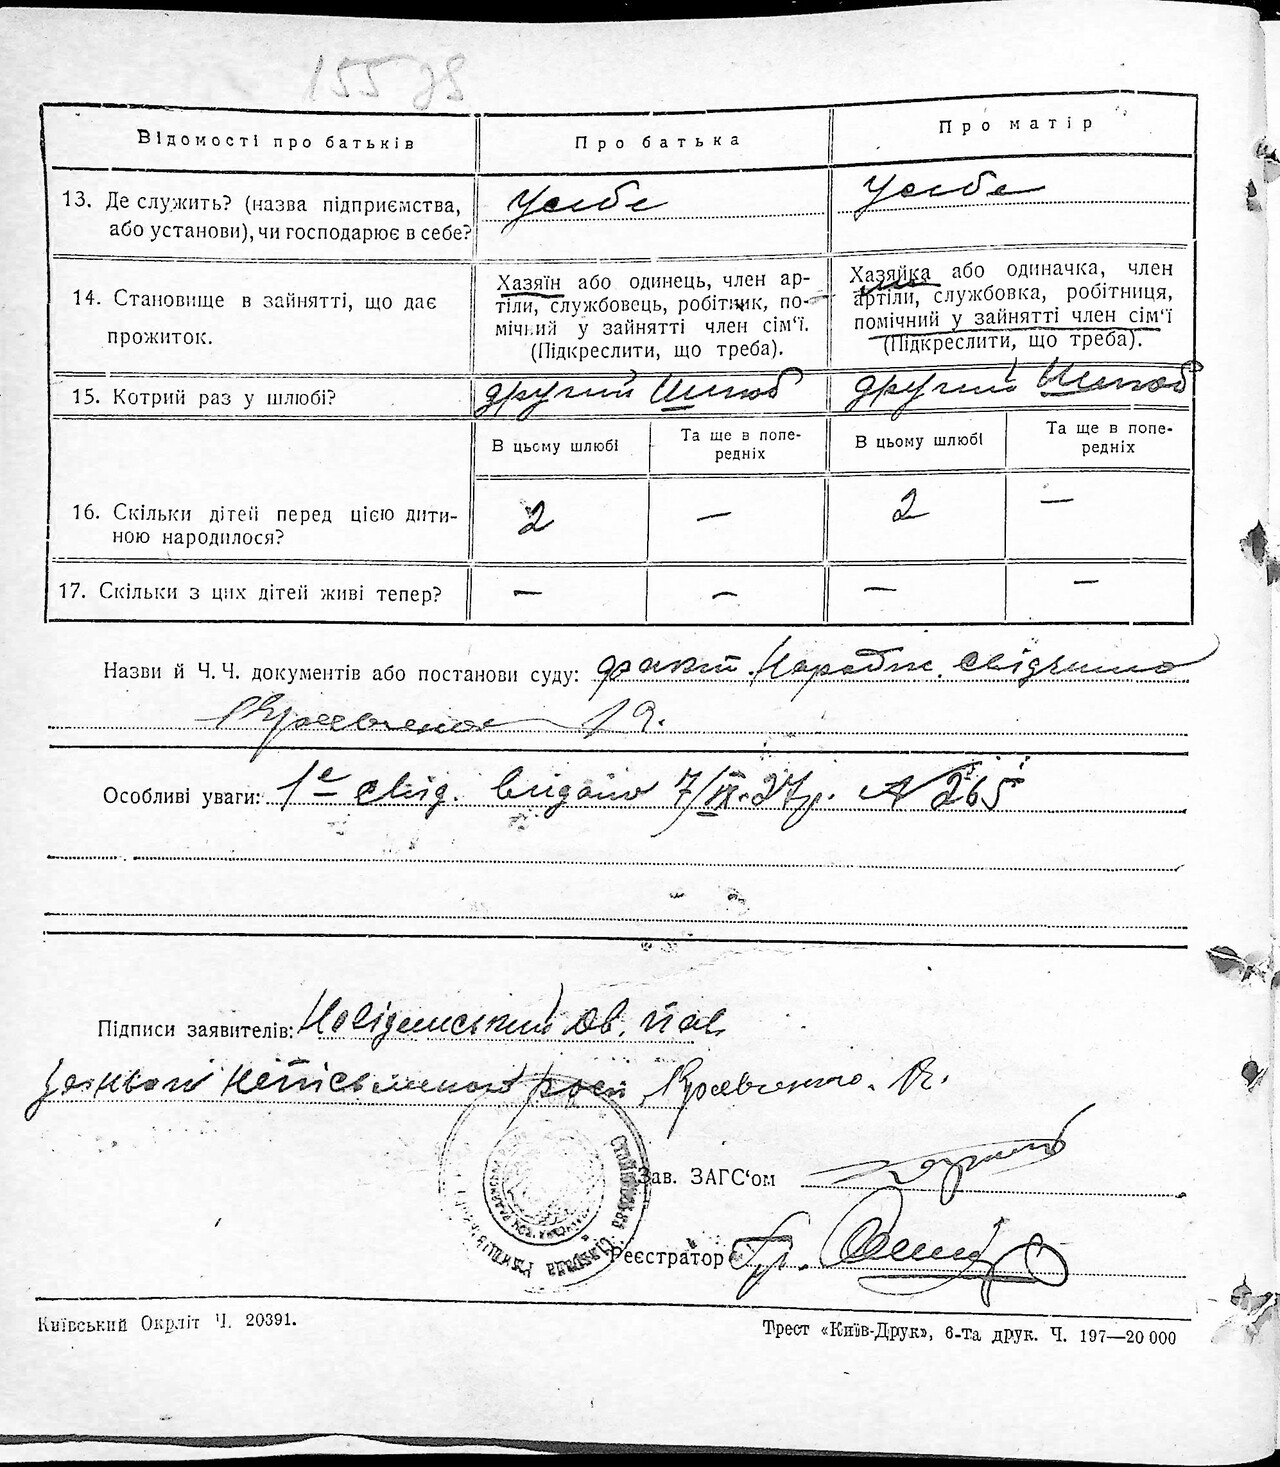 155 зв
Відомості про батьків
Про батька
Про матір
13. Де служить? (назва підприємства,
або установи), чи господарює в себе?
У себе
У себе
14. Становище в зайнятті, що дає
прожиток.
Хазяїн або одинець, член ар-
тіли, службовець, робітник, по-
мічний у зайнятті член сім'ї.
(Підкреслити, що треба).
Хазяйка або одиначка, член
артіли, службовка, робітниця,
помічний у зайнятті член сім'ї
(Підкреслити, що треба).
15. Котрий раз у шлюбі?
другий шлюб
другий шлюб
В цьому шлюбі
Та ще в попе-
редніх
В цьому шлюбі
Та ще в попе-
редніх
16. Скільки дітей перед цією дити-
ною народилося?
2
—
2
—
17. Скільки з цих дітей живі тепер?
—
—
—
—
Назви й Ч. Ч. документів або постанови суду: факт Народж. свідчила
Кравченко
Особливі уваги: 1е свід. видано 7/IX-27р. № 265
Підписи заявителів:
неписьменного Кравченко.
Зав. ЗАГС'ом
Реєстратор
Київський Окрліт Ч. 20391.
Трест «Київ-Друк», 6-та друк. Ч. 197—20 000